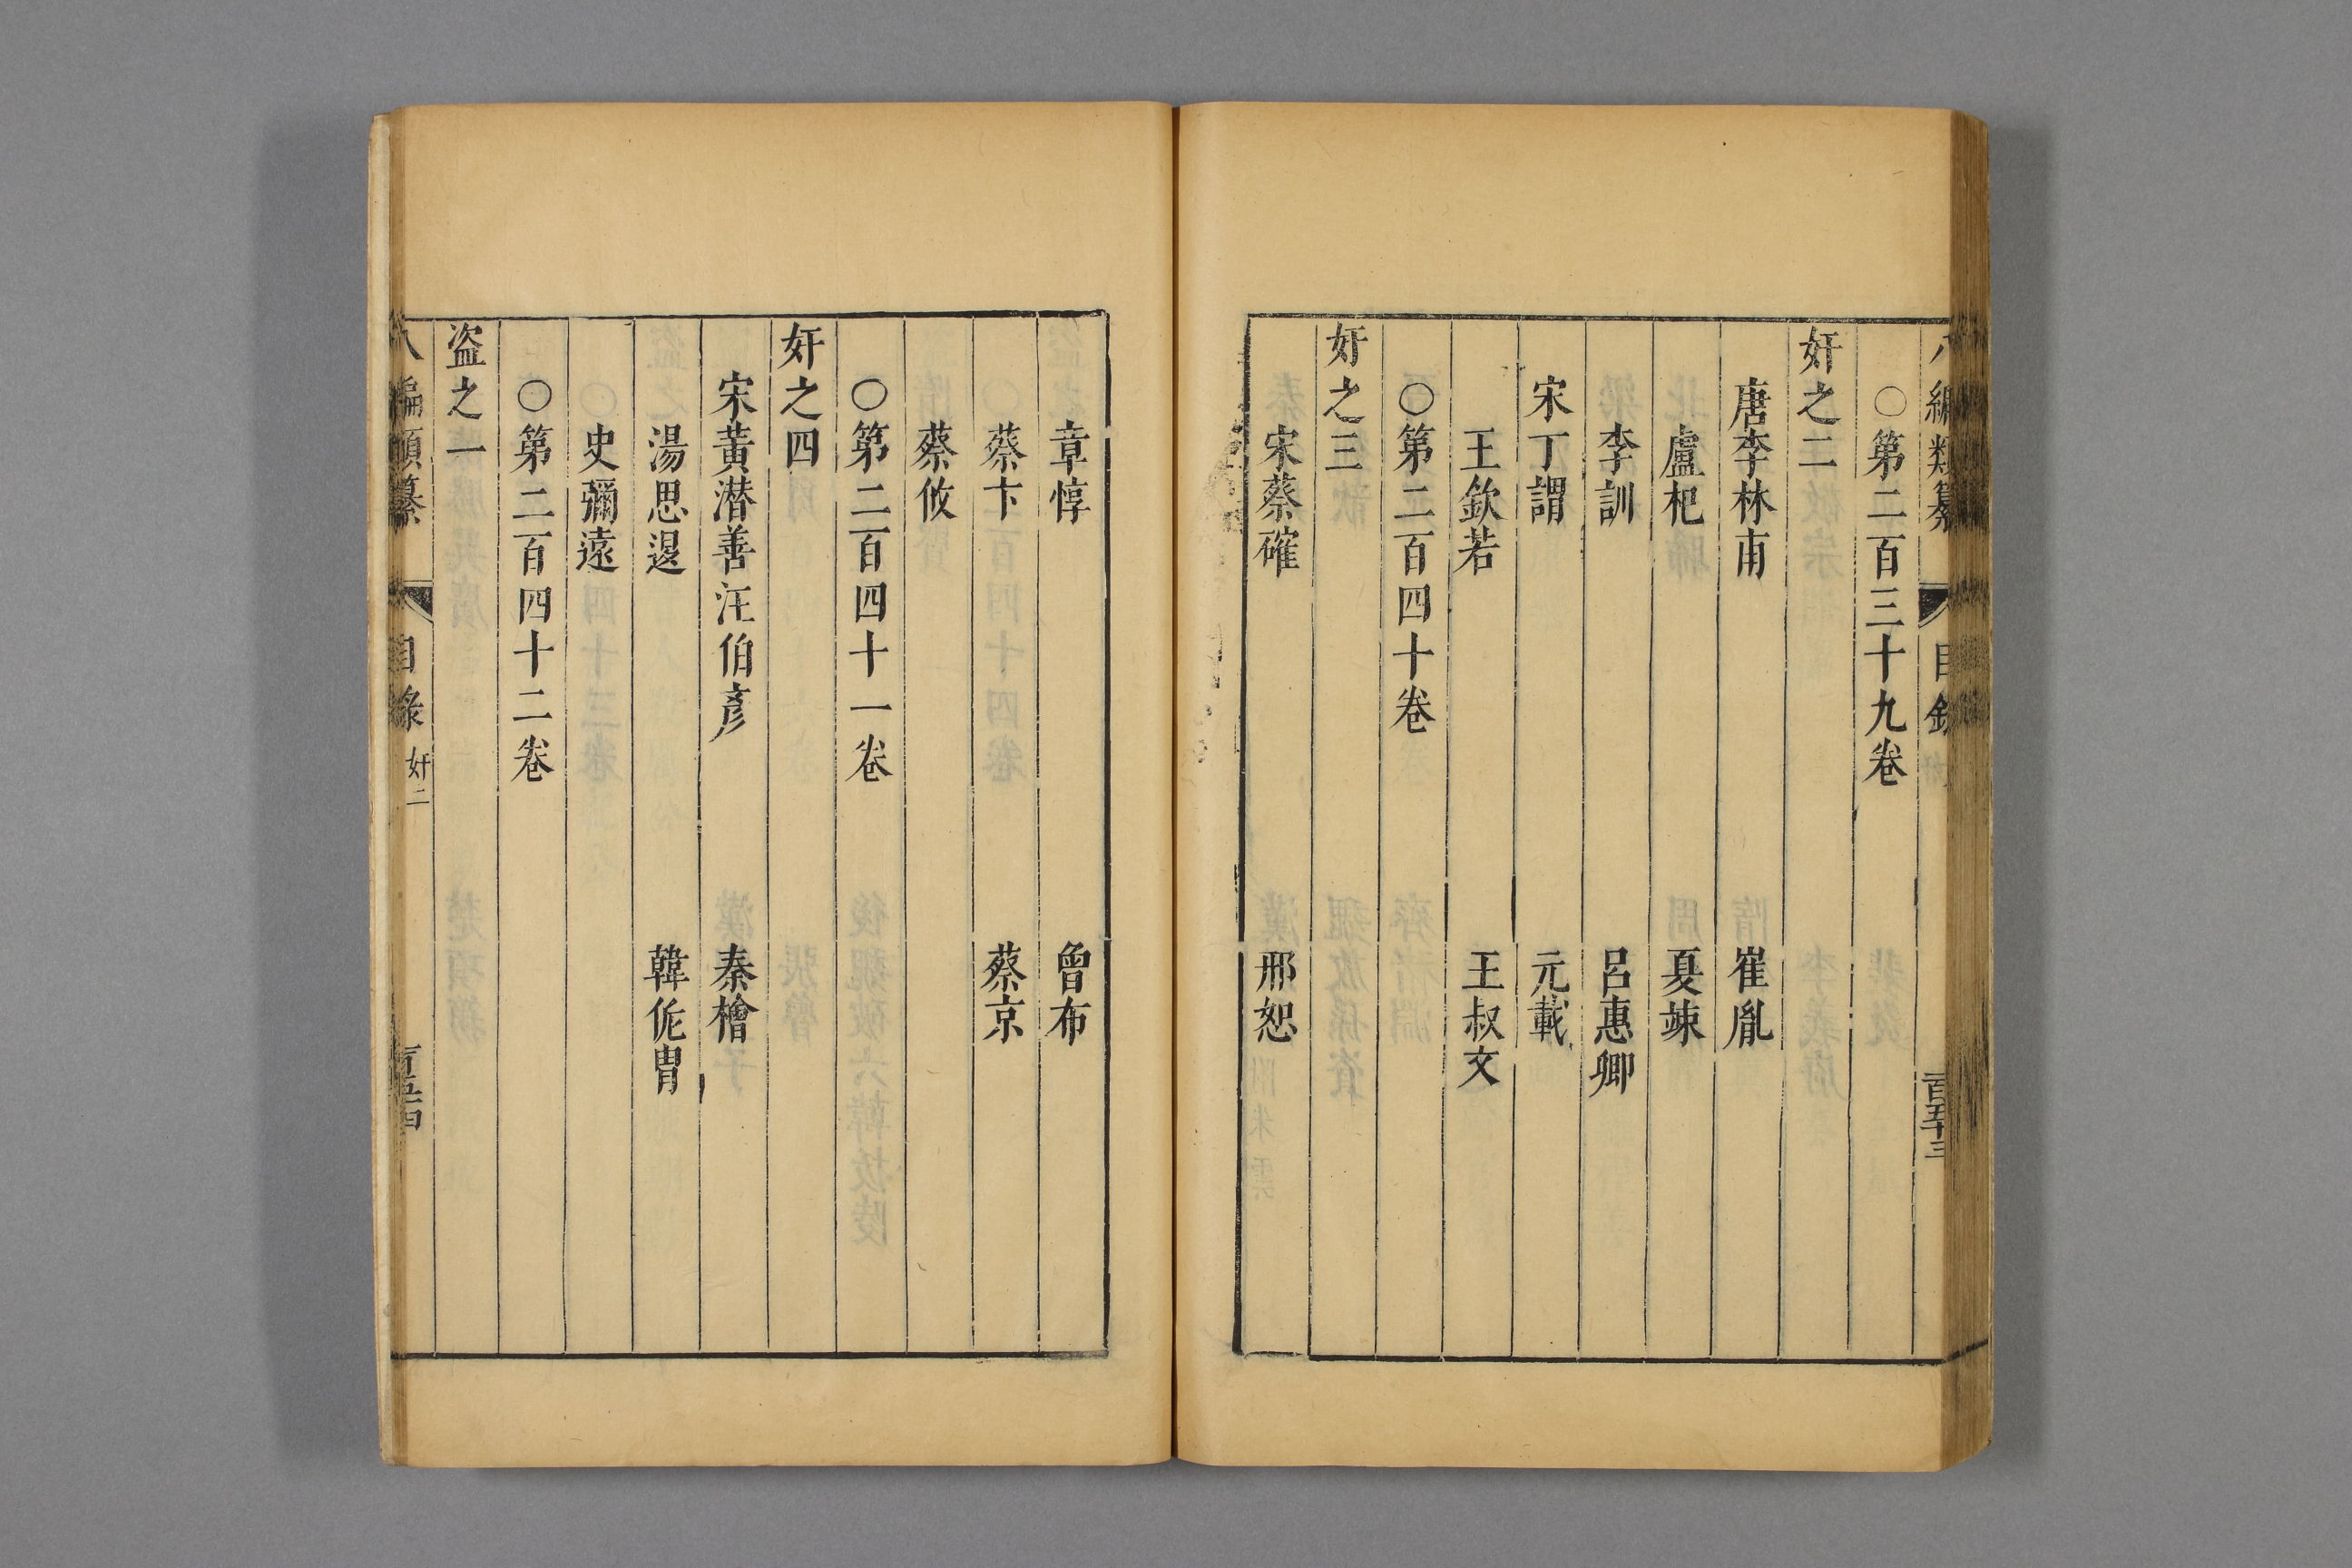 八編類纂 目錄 百五十三
○第二百三十九卷
奸之二
唐李林甫 崔胤
盧杞 夏竦
李訓 呂惠卿
宋丁謂 元載
王欽若 王叔文
○第二百四十卷
奸之三
宋蔡確 邢恕
章惇 曾布
蔡卞 蔡京
蔡攸
○第二百四十一卷
奸之四
宋黃潛善汪伯彥 秦檜
湯思退 韓侂冑
史彌遠
○第二百四十二卷
盜之一
八編類纂 目錄 奸二 百五十四